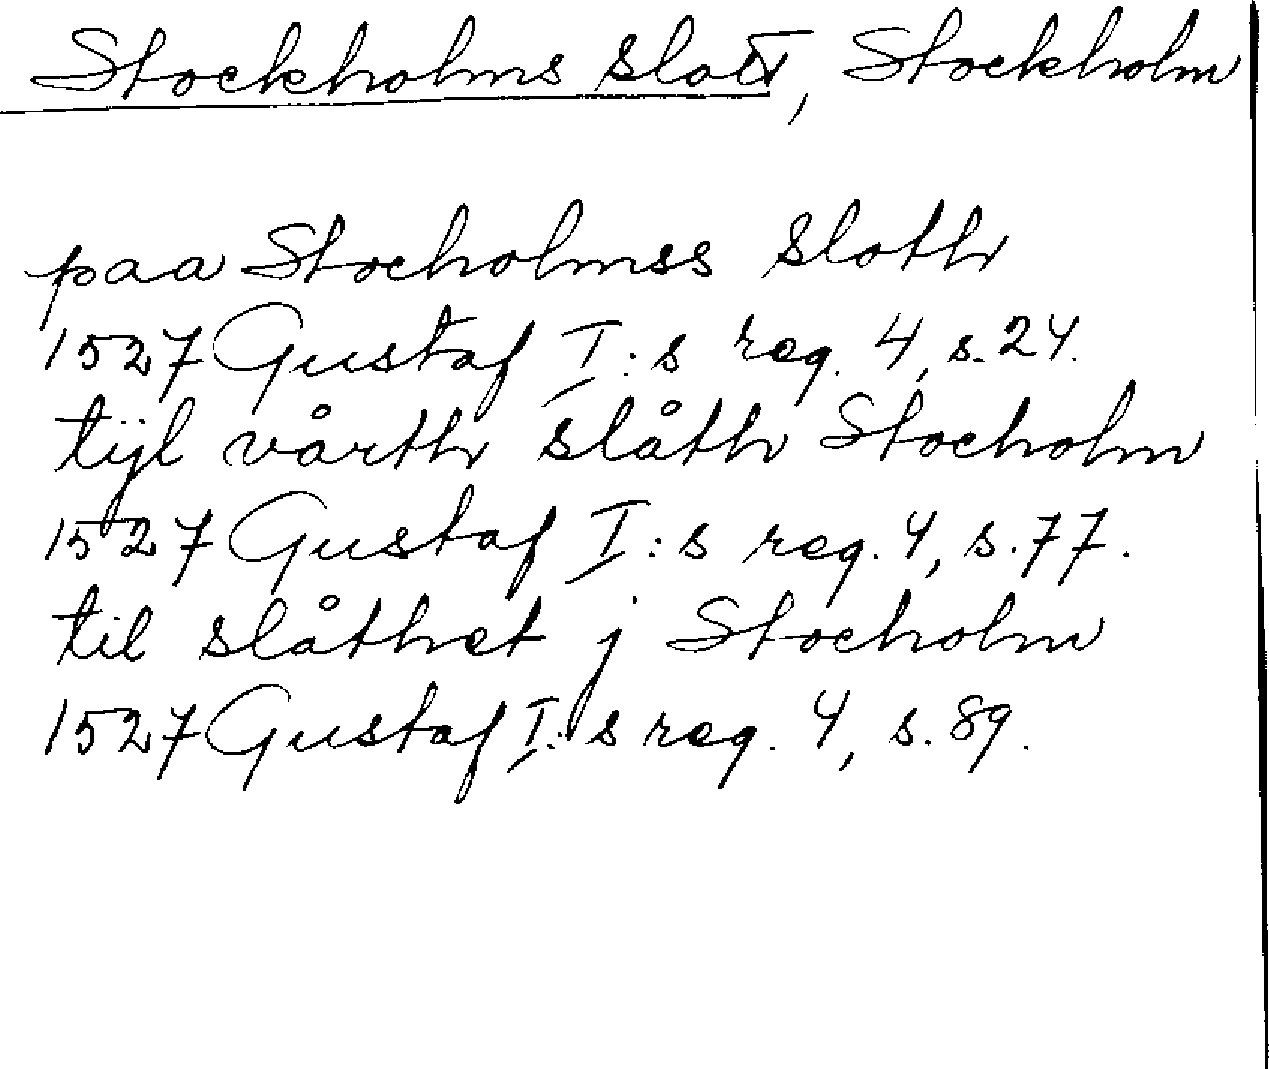 Stockholms slott, Stockholm
paa Stocholmss sloth
1527 Gustaf I:s reg. 4, s. 24.
tijl vårth slåth Stocholm
1527 Gustaf I:s reg. 4, s. 77.
til slåthet j Stocholm
1527 Gustaf I:s reg. 4, s. 89.